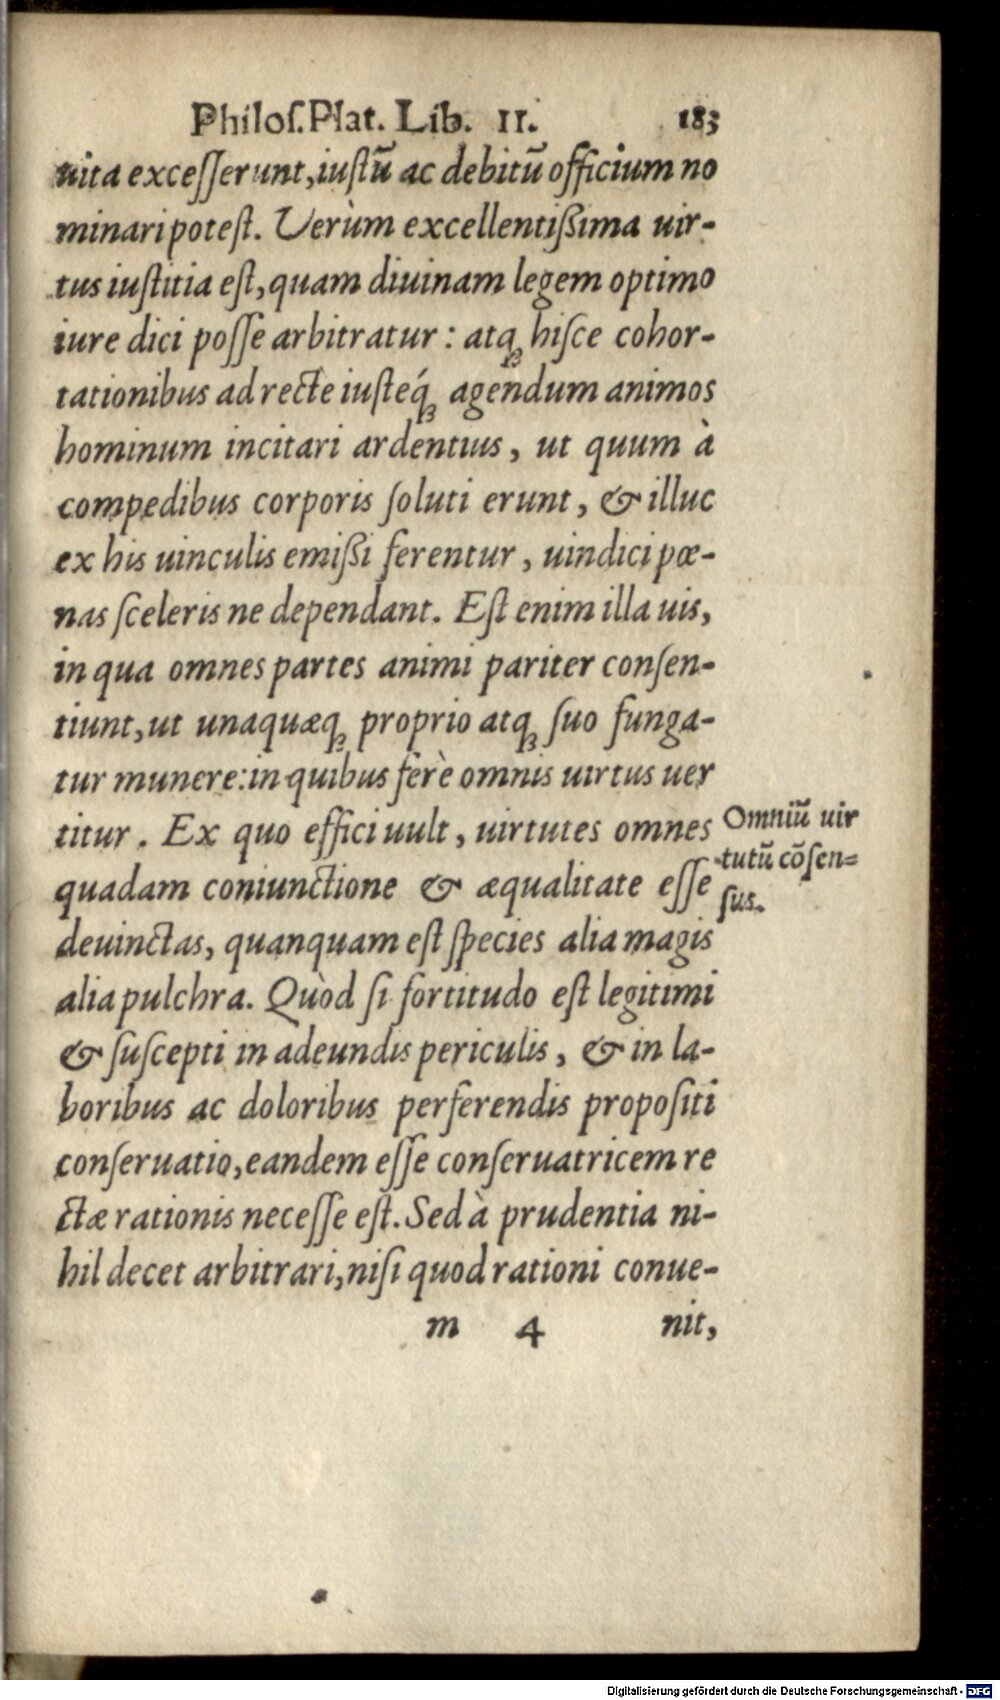 Philoſ. Plat. Lib. II. 183
uita exceſſerunt, iuſtũ ac debitũ officium no
minari poteſt. Verùm excellentißima uir-
tus iuſtitia eſt, quam diuinam legem optimo
iure dici poſſe arbitratur: atqꝫ hiſce cohor-
tationibus ad recte iuſteq́ꝫ agendum animos
hominum incitari ardentius, ut quum à
compedibus corporis ſoluti erunt, & illuc
ex his uinculis emißi ferentur, uindici pœ-
nas ſceleris ne dependant. Eſt enim illa uis,
in qua omnes partes animi pariter conſen-
tiunt, ut unaquæqꝫ proprio atqꝫ ſuo funga-
tur munere: in quibus ferè omnis uirtus uer
titur. Ex quo effici uult, uirtutes omnes
quadam coniunctione & æqualitate eſſe
deuinctas, quanquam eſt ſpecies alia magis
alia pulchra. Quòd ſi fortitudo eſt legitimi
& ſuſcepti in adeundis periculis, & in la-
boribus ac doloribus perferendis propoſiti
conſeruatio, eandem eſſe conſeruatricem re
ctæ rationis neceſſe eſt. Sed à prudentia ni-
hil decet arbitrari, niſi quod rationi conue-
m 4 nit,
Omniũ uir
tutũ cõſen=
ſus.
Digitalisierung gefördert durch die Deutsche Forschungsgemeinschaft - DFG